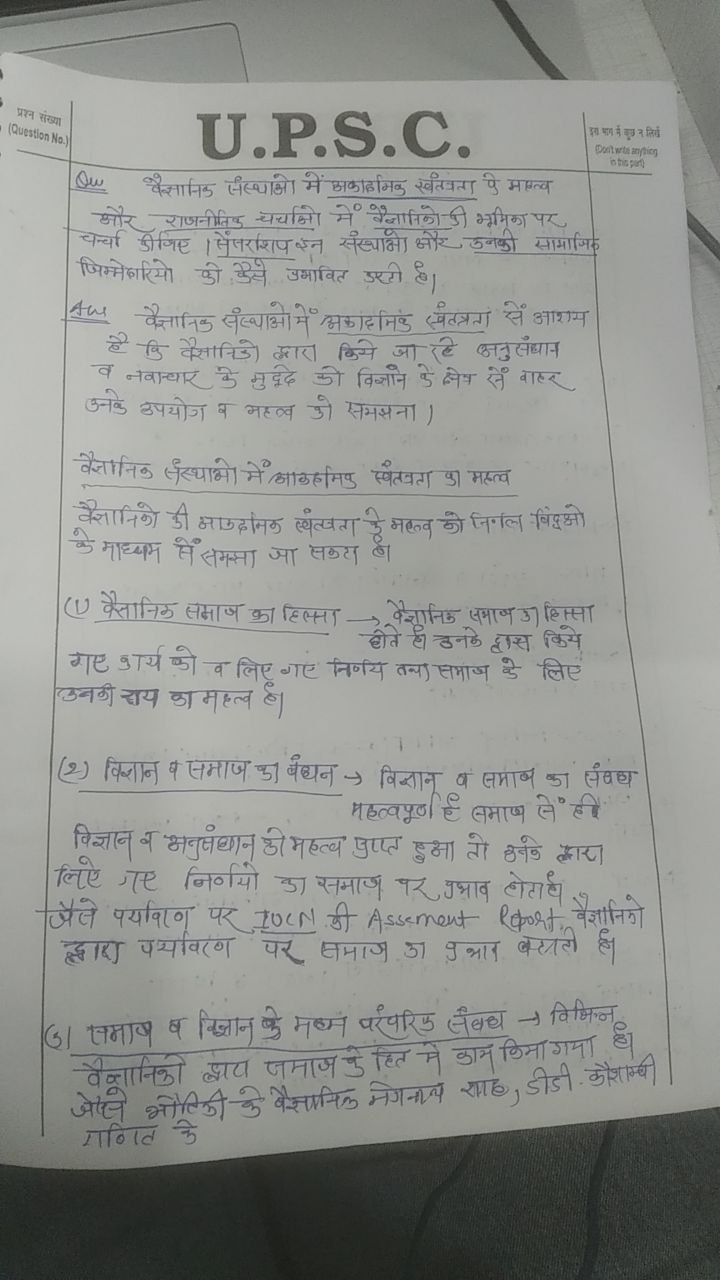 प्रश्न संख्या
(Question No.)
U.P.S.C.
इस भाग में कुछ न लिखें
(Don't write anything
in this part)
Que वैज्ञानिक संस्थाओ में अकादमिक स्वतंत्रता के महत्व
और राजनीतिक चर्चाओ में वैज्ञानिको की भूमिका पर
चर्चा कीजिए। सेंसरशिप इन संस्थाओ और उनकी सामाजिक
जिम्मेदारियो को कैसे प्रभावित करती है।
Ans वैज्ञानिक संस्थाओ में अकादमिक स्वतंत्रता से आशय
है कि वैज्ञानिको द्वारा किये जा रहे अनुसंधान
व नवाचार के मुद्दे को विज्ञान के क्षेत्र से बाहर
उनके उपयोग व महत्व को समझना।
वैज्ञानिक संस्थाओ में अकादमिक स्वतंत्रता का महत्व
वैज्ञानिको की अकादमिक स्वतंत्रता के महत्व को निम्न बिंदुओ
के माध्यम से समझा जा सकता है।
(1) वैज्ञानिक समाज का हिस्सा → वैज्ञानिक समाज का हिस्सा
होते है। उनके द्वारा किये
गए कार्य को व लिए गए निर्णय तथा समाज के लिए
उनकी राय का महत्व है।
(2) विज्ञान व समाज का बंधन → विज्ञान व समाज का संबंध
महत्वपूर्ण है समाज से ही
विज्ञान व अनुसंधान को महत्व प्राप्त हुआ तो उनके द्वारा
लिऐ गए निर्णयो का समाज पर प्रभाव होता है
जैसे पर्यावरण पर IUCN की Assesment Report वैज्ञानिको
द्वारा पर्यावरण पर समाज का प्रभाव बताती है।
(3) समाज व विज्ञान के मध्य पंरपरिक संबंध → विभिन्न
वैज्ञानिको द्वारा समाज के हित में काम किया गया है।
जैसे भौतिकी के वैज्ञानिक मेघनाथ साह, डीडी. कौशाम्बी
गणित के